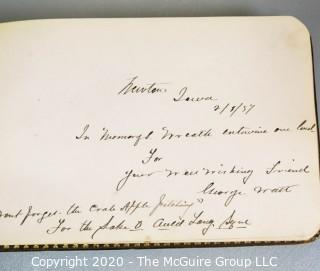 Newton Iowa
2/8/87
In Memory's Wreath entwine one bud
For
Your Well Wishing Friend
George Watt
dont forget the Crab Apple Pitching"
For the Sake O Auld Lang Syne
Copyright 2020 - The McGuire Group